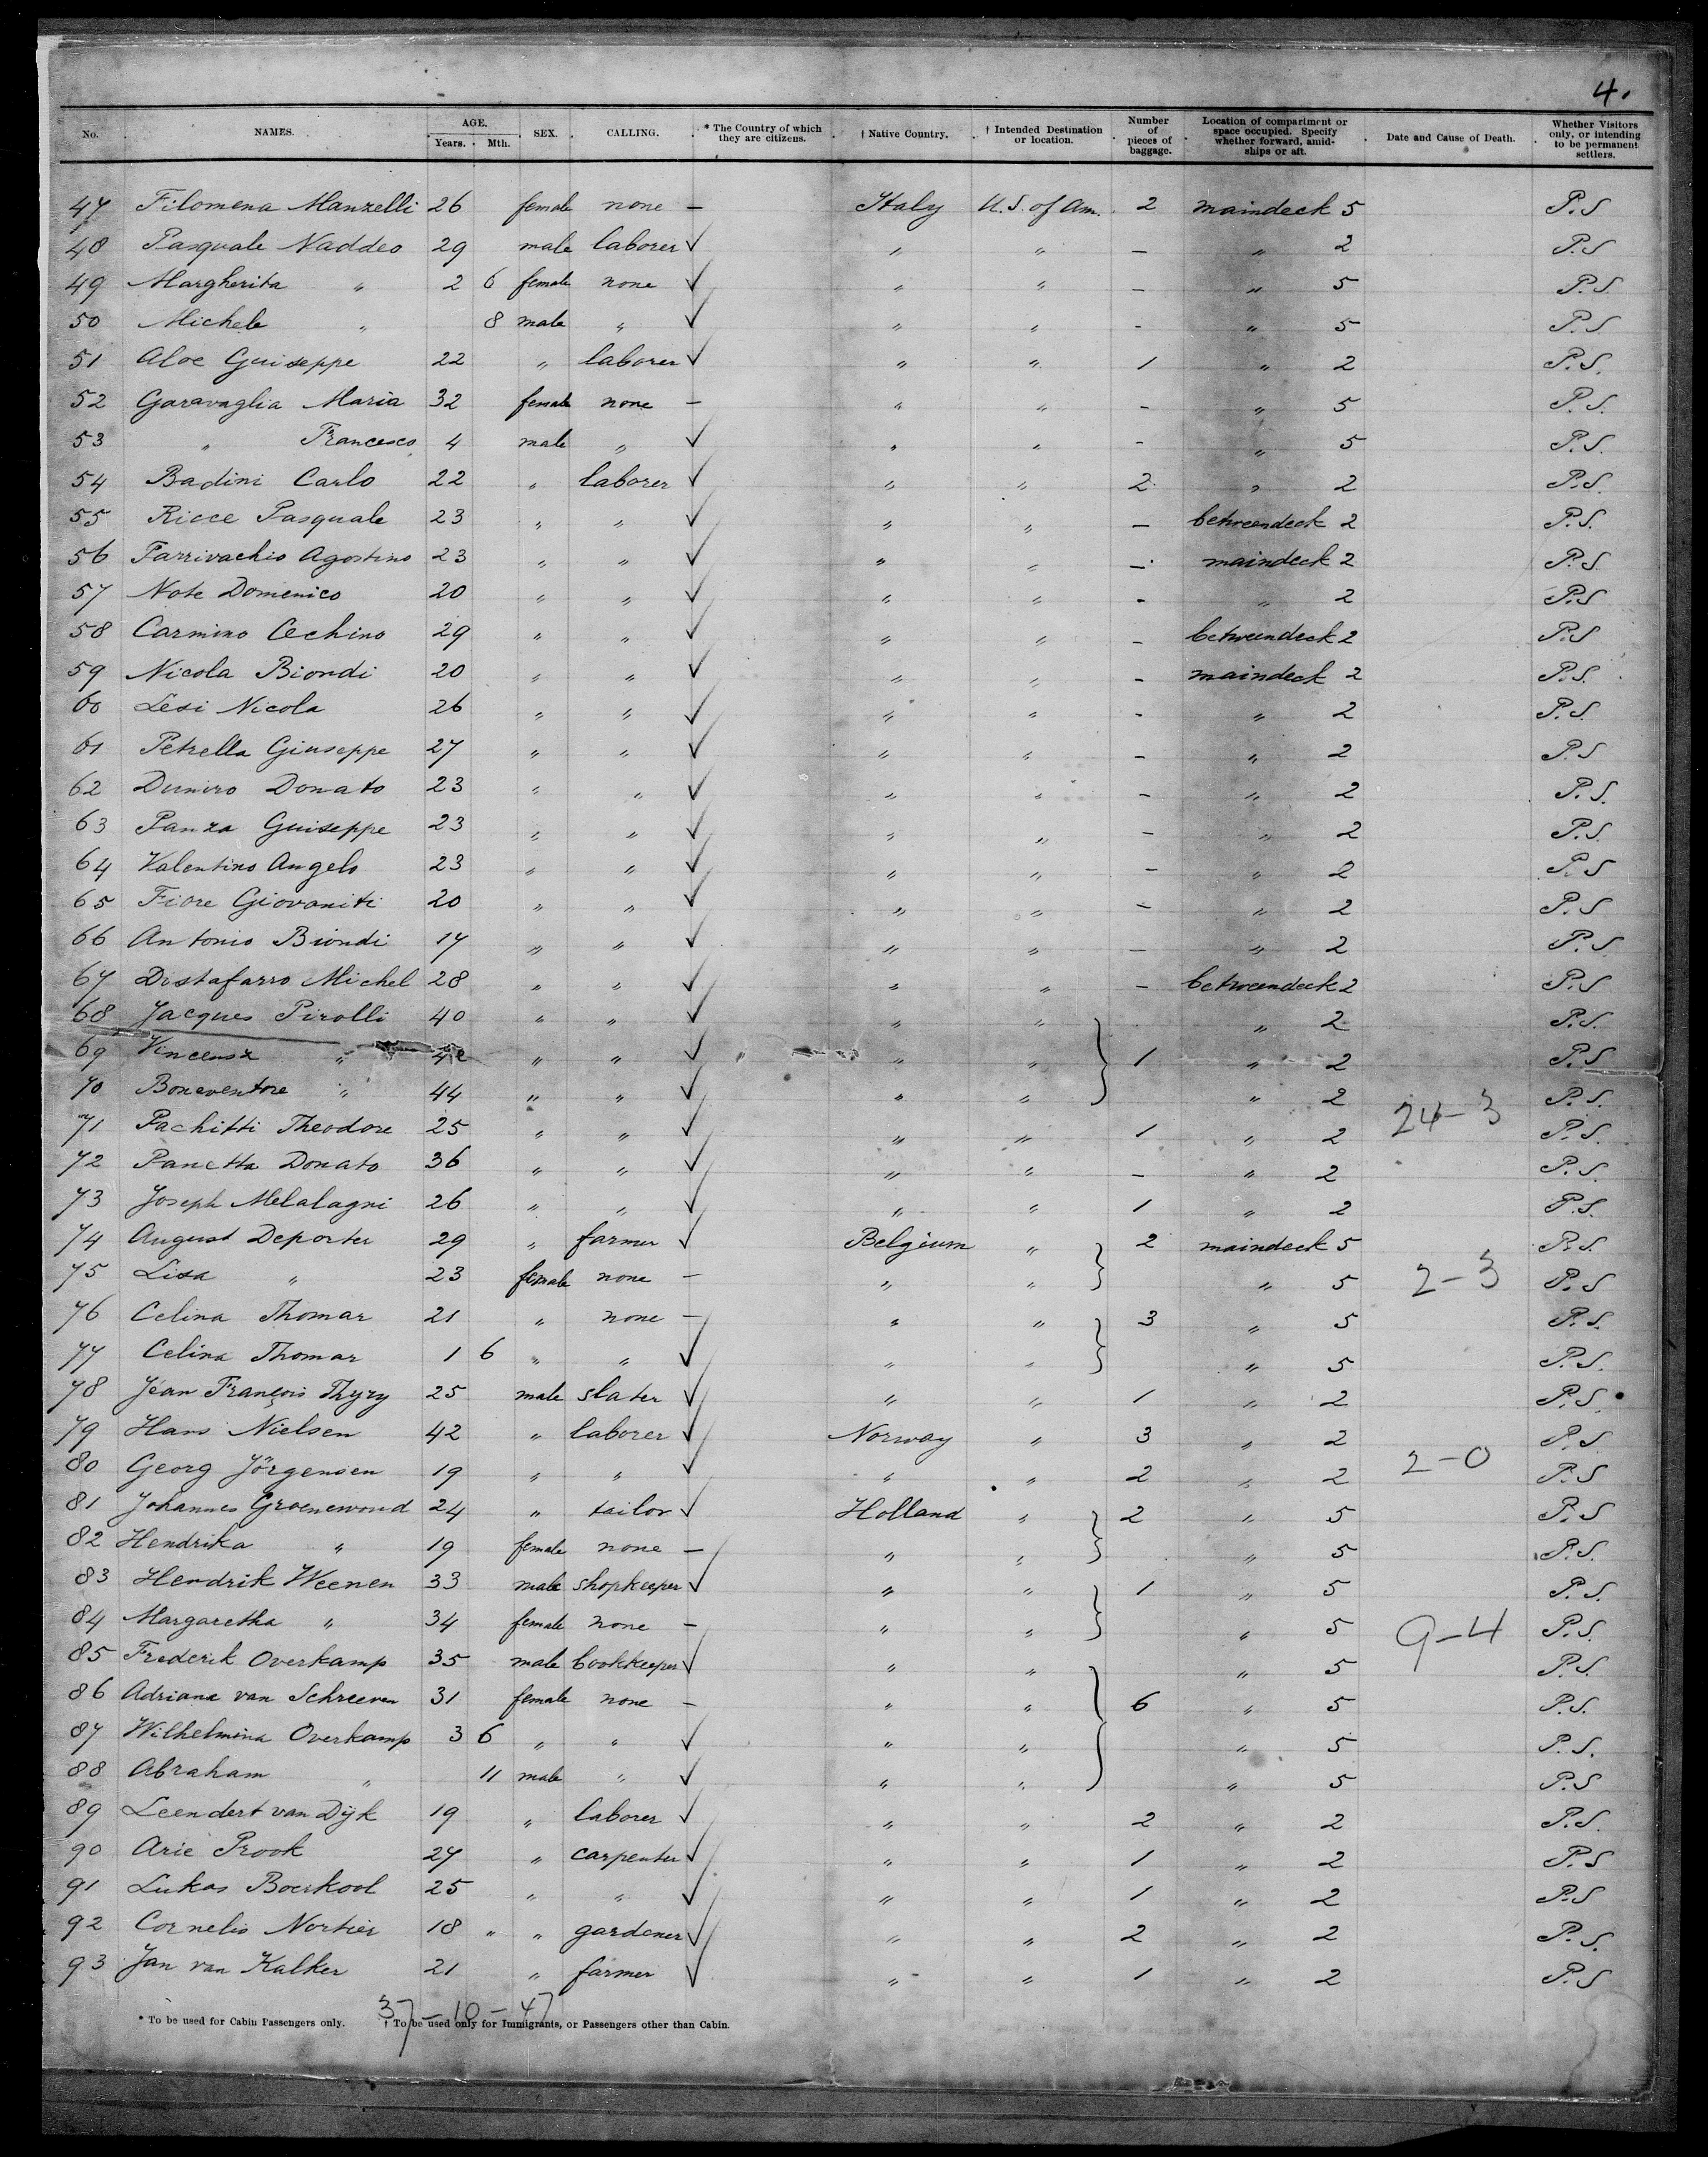 4.
No. NAMES. AGE. Years. Mth. SEX. CALLING. * The Country of which they are citizens. † Native Country. † Intended Destination or location. Number of pieces of baggage. Location of compartment or space occupied. Specify whether forward, amidships or aft. Date and Cause of Death. Whether Visitors only, or intending to be permanent settlers.
47 Filomena Manzelli 26 female none — Italy U.S. of Am. 2 maindeck 5 P.S
48 Pasquale Naddeo 29 male laborer ✓ " " — " 2 P.S
49 Margherita " 2 6 female none ✓ " " — " 5 P.S.
50 Michele " 8 male " ✓ " " - " 5 P.S.
51 Aloe Guiseppe 22 " laborer ✓ " " 1 " 2 P.S.
52 Garavaglia Maria 32 female none — " " - " 5 P.S.
53 " Francesco 4 male " ✓ " " - " 5 P.S.
54 Badini Carlo 22 " laborer ✓ " " 2 " 2 P.S.
55 Ricce Pasquale 23 " " ✓ " " — betweendeck 2 P.S.
56 Farrivachio Agostino 23 " " ✓ " " — maindeck 2 P.S.
57 Note Domenico 20 " " ✓ " " - " 2 P.S
58 Carmino Cechino 29 " " ✓ " " - betweendeck 2 P.S
59 Nicola Biondi 20 " " ✓ " " - maindeck 2 P.S.
60 Lesi Nicola 26 " " ✓ " " - " 2 P.S.
61 Petrella Giuseppe 27 " " ✓ " " - " 2 P.S
62 Duniro Donato 23 " " ✓ " " - " 2 P.S.
63 Panza Guiseppe 23 " " ✓ " " - " 2 P.S.
64 Valentino Angelo 23 " " ✓ " " - " 2 P.S
65 Fiore Giovaniti 20 " " ✓ " " - " 2 P.S
66 Antonio Biondi 17 " " ✓ " " — " 2 P.S
67 Distafarro Michel 28 " " ✓ " " - betweendeck 2 P.S
68 Jacques Pirolli 40 " " ✓ " " " 2 P.S.
69 Vincensz " " " ✓ " " 1 " 2 P.S
70 Boneventore " 44 " " ✓ " " " 2 P.S.
24-3
71 Pachitti Theodore 25 " " ✓ " " 1 " 2 P.S.
72 Panetta Donato 36 " " ✓ " " - " 2 P.S.
73 Joseph Melalagni 26 " " ✓ " " 1 " 2 P.S.
74 August Deporter 29 " farmer ✓ Belgium " 2 maindeck 5 P.S.
75 Lisa " 23 female none — " " " 5 2-3 P.S
76 Celina Thomar 21 " none — " " 3 " 5 P.S.
77 Celina Thomar 1 6 " " ✓ " " " 5 P.S.
78 Jean François Thyry 25 male slater ✓ " " 1 " 2 P.S.
79 Hans Nielsen 42 " laborer ✓ Norway " 3 " 2 P.S.
80 Georg Jörgensen 19 " " ✓ " " 2 " 2 2-0 P.S
81 Johannes Groenewoud 24 " tailor ✓ Holland " 2 " 5 P.S
82 Hendrika " 19 female none — " " " 5 P.S.
83 Hendrik Weenen 33 male shopkeeper ✓ " " 1 " 5 P.S.
84 Margaretha " 34 female none — " " " 5 9-4 P.S.
85 Frederik Overkamp 35 male bookkeeper ✓ " " " 5 P.S.
86 Adriana van Schreeven 31 female none — " " 6 " 5 P.S.
87 Wilhelmina Overkamp 3 6 " " ✓ " " " 5 P.S.
88 Abraham " 11 male " ✓ " " " 5 P.S
89 Leendert van Dijk 19 " laborer ✓ " " 2 " 2 P.S.
90 Arie Prook 27 " carpenter ✓ " " 1 " 2 P.S
91 Lukas Boerkool 25 " " ✓ " " 1 " 2 P.S
92 Cornelis Nortier 18 " " gardener ✓ " " 2 " 2 P.S.
93 Jan van Kalker 21 " farmer ✓ " " 1 " 2 P.S
37-10-47
* To be used for Cabin Passengers only. † To be used only for Immigrants, or Passengers other than Cabin.